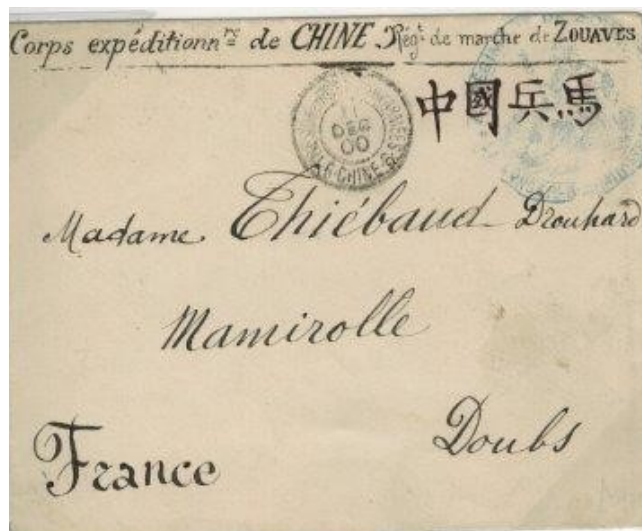 Corps expéditionn.re de CHINE Régt de marche de ZOUAVES
中國兵馬
DEC
00
CHINE
Madame Thiébaud-Drouhard
Mamirolle
Doubs
France